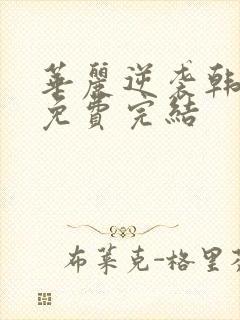 華麗逆袭韩
免費完結
布萊克-格里芬